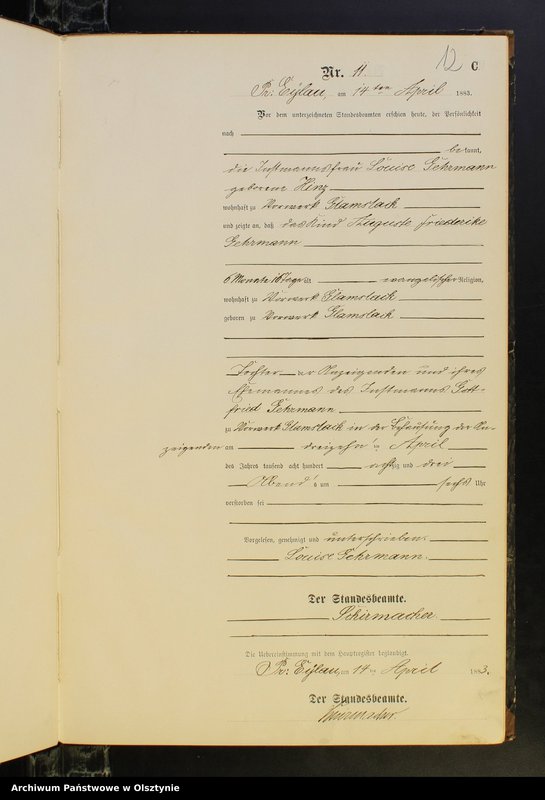 12
C
Nr. 11.
Pr: Eylau, am 14 ten April 1883.
Vor dem unterzeichneten Standesbeamten erschien heute, der Persönlichkeit
nach
bekannt,
die Instmannsfrau Louise Gehrmann
geborene Hinz
wohnhaft zu Vorwerk Glamslack
und zeigte an, daß das Kind Auguste Friederike
Gehrmann
6 Monate 16 Tage alt evangelischer Religion,
wohnhaft zu Vorwerk Glamslack
geboren zu Vorwerk Glamslack
Tochter der Anzeigenden und ihres
Ehemannes des Instmanns Gott-
fried Gehrmann
zu Vorwerk Glamslack in der Behausung der An-
zeigenden am dreizehnten April
des Jahres tausend acht hundert achtzig und drei
Abends um sechs Uhr
verstorben sei
Vorgelesen, genehmigt und unterschrieben.
Louise Gehrmann.
Der Standesbeamte.
Schirmacher.
Die Uebereinstimmung mit dem Hauptregister beglaubigt.
Pr: Eylau, am 14 ten April 1883.
Der Standesbeamte.
Schirmacher.
Archiwum Państwowe w Olsztynie